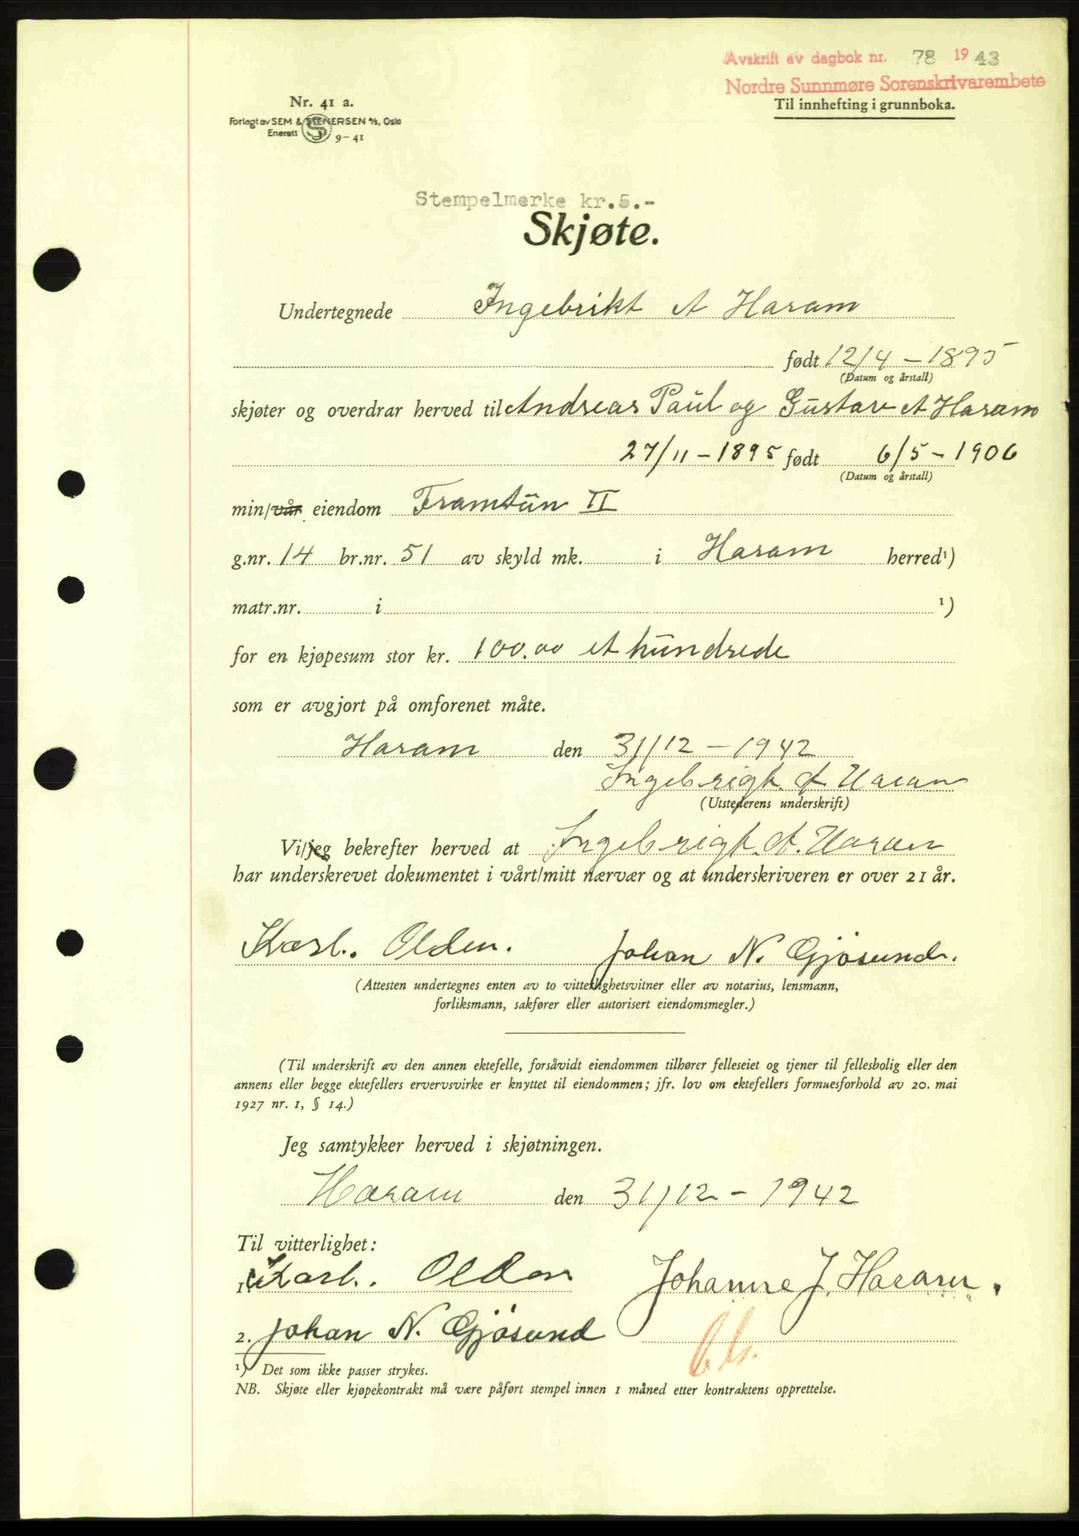 Avskrift av dagbok nr. 78 1943
Nordre Sunnmøre Sorenskrivarembete
Til innhefting i grunnboka.
Nr. 41 a.
Forlagt av SEM & STENERSEN A/S, Oslo
Enerett 9-41
Stempelmerke kr.5.-
Skjøte.
Undertegnede Ingebrikt A Haram
født 12/4 - 1895
(Datum og årstall)
skjøter og overdrar herved til Andreas Paul og Gustav A Haram
27/11 - 1895 født 6/5 - 1906
(Datum og årstall)
min/vår eiendom Framtün II
g.nr. 14 br.nr. 51 av skyld mk. i Haram herred¹)
matr.nr. i ¹)
for en kjøpesum stor kr. 100.00 et hündrede
som er avgjort på omforenet måte.
Haram den 31/12 - 1942
Ingebrigt A Haram
(Utstederens underskrift)
Vi/jeg bekrefter herved at Ingebrigt A. Haram
har underskrevet dokumentet i vårt/mitt nærvær og at underskriveren er over 21 år.
Karl. Olden. Johan N. Gjösund.
(Attesten undertegnes enten av to vitterlighetsvitner eller av notarius, lensmann,
forliksmann, sakfører eller autorisert eiendomsmegler.)
(Til underskrift av den annen ektefelle, forsåvidt eiendommen tilhører felleseiet og tjener til fellesbolig eller den
annens eller begge ektefellers ervervsvirke er knyttet til eiendommen; jfr. lov om ektefellers formuesforhold av 20. mai
1927 nr. 1, § 14.)
Jeg samtykker herved i skjøtningen.
Haram den 31/12 - 1942
Til vitterlighet:
1. Karl. Olden Johanne J. Haram.
2. Johan N. Gjösund
¹) Det som ikke passer strykes.
NB. Skjøte eller kjøpekontrakt må være påført stempel innen 1 måned etter kontraktens opprettelse.